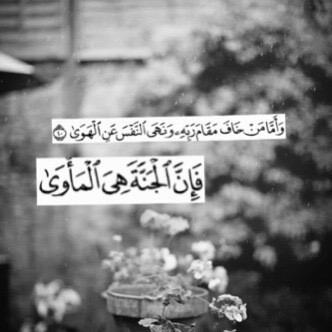 وَأَمَّا مَنْ خَافَ مَقَامَ رَبِّهِۦ وَنَهَى ٱلنَّفْسَ عَنِ ٱلْهَوَىٰ ٤٠
فَإِنَّ ٱلْجَنَّةَ هِىَ ٱلْمَأْوَىٰ